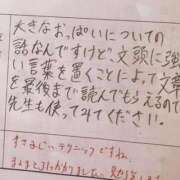 大きなおっぱいについての
話なんですけど、文頭に強
い言葉を置くことによって文章
を最後まで読んでもらえるので
先生も使ってみてください。
すさまじいテクニックですね。
まんまとひっかかりました。勉強になります